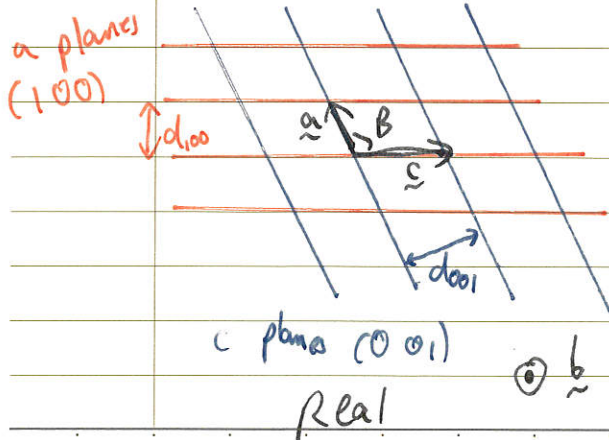 a planes
(100)
d100
a
B
c
d001
c planes (001)
b
Real